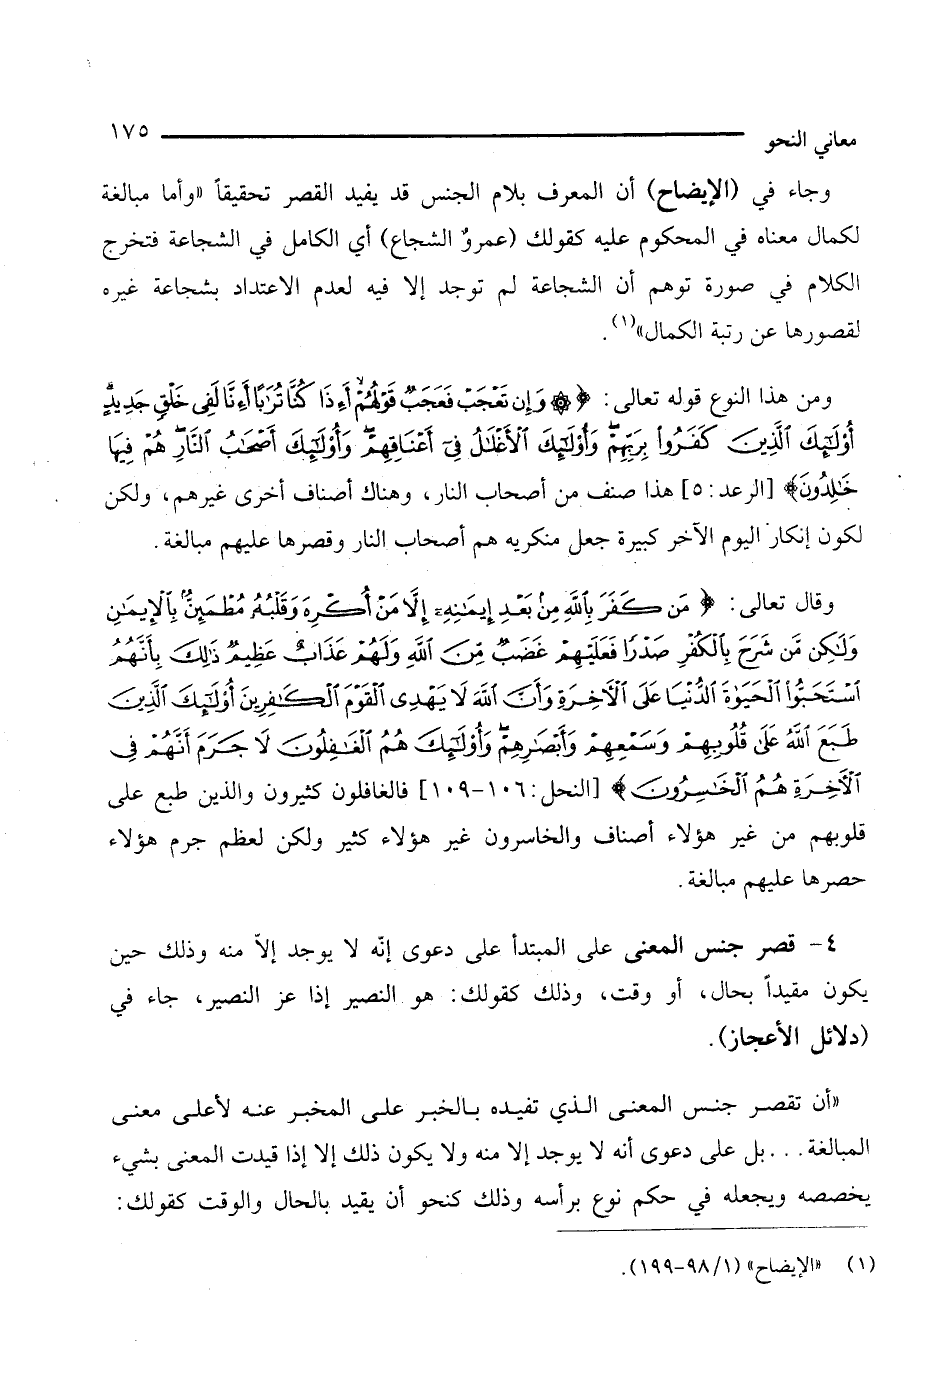 معاني النحو ١٧٥
وجاء في (الإيضاح) أن المعرف بلام الجنس قد يفيد القصر تحقيقاً «وأما مبالغة
لكمال معناه في المحكوم عليه كقولك (عمروٌ الشجاع) أي الكامل في الشجاعة فتخرج
الكلام في صورة توهم أن الشجاعة لم توجد إلا فيه لعدم الاعتداد بشجاعة غيره
لقصورها عن رتبة الكمال»(١).
ومن هذا النوع قوله تعالى: ﴿ ۞ وَإِن تَعْجَبْ فَعَجَبٌ قَوْلُهُمْ أَءِذَا كُنَّا تُرَٰبًا أَءِنَّا لَفِى خَلْقٍ جَدِيدٍ
أُو۟لَٰٓئِكَ ٱلَّذِينَ كَفَرُوا۟ بِرَبِّهِمْ وَأُو۟لَٰٓئِكَ ٱلْأَغْلَٰلُ فِىٓ أَعْنَاقِهِمْ وَأُو۟لَٰٓئِكَ أَصْحَٰبُ ٱلنَّارِ هُمْ فِيهَا
خَٰلِدُونَ﴾ [الرعد: ٥] هذا صنف من أصحاب النار، وهناك أصناف أخرى غيرهم، ولكن
لكون إنكار اليوم الآخر كبيرة جعل منكريه هم أصحاب النار وقصرها عليهم مبالغة.
وقال تعالى: ﴿ مَن كَفَرَ بِٱللَّهِ مِنۢ بَعْدِ إِيمَٰنِهِۦٓ إِلَّا مَنْ أُكْرِهَ وَقَلْبُهُۥ مُطْمَئِنٌّۢ بِٱلْإِيمَٰنِ
وَلَٰكِن مَّن شَرَحَ بِٱلْكُفْرِ صَدْرًا فَعَلَيْهِمْ غَضَبٌ مِّنَ ٱللَّهِ وَلَهُمْ عَذَابٌ عَظِيمٌ ذَٰلِكَ بِأَنَّهُمُ
ٱسْتَحَبُّوا۟ ٱلْحَيَوٰةَ ٱلدُّنْيَا عَلَى ٱلْأَخِرَةِ وَأَنَّ ٱللَّهَ لَا يَهْدِى ٱلْقَوْمَ ٱلْكَٰفِرِينَ أُو۟لَٰٓئِكَ ٱلَّذِينَ
طَبَعَ ٱللَّهُ عَلَىٰ قُلُوبِهِمْ وَسَمْعِهِمْ وَأَبْصَٰرِهِمْ وَأُو۟لَٰٓئِكَ هُمُ ٱلْغَٰفِلُونَ لَا جَرَمَ أَنَّهُمْ فِى
ٱلْأَخِرَةِ هُمُ ٱلْخَٰسِرُونَ ﴾ [النحل: ١٠٦-١٠٩] فالغافلون كثيرون والذين طبع على
قلوبهم من غير هؤلاء أصناف والخاسرون غير هؤلاء كثير ولكن لعظم جرم هؤلاء
حصرها عليهم مبالغة.
٤- قصر جنس المعنى على المبتدأ على دعوى إنّه لا يوجد إلاّ منه وذلك حين
يكون مقيداً بحال، أو وقت، وذلك كقولك: هو النصير إذا عز النصير، جاء في
(دلائل الأعجاز).
«أن تقصر جنس المعنى الذي تفيده بالخبر على المخبر عنه لأعلى معنى
المبالغة... بل على دعوى أنه لا يوجد إلا منه ولا يكون ذلك إلا إذا قيدت المعنى بشيء
يخصصه ويجعله في حكم نوع برأسه وذلك كنحو أن يقيد بالحال والوقت كقولك:
(١) «الإيضاح» (٩٨/١-١٩٩).